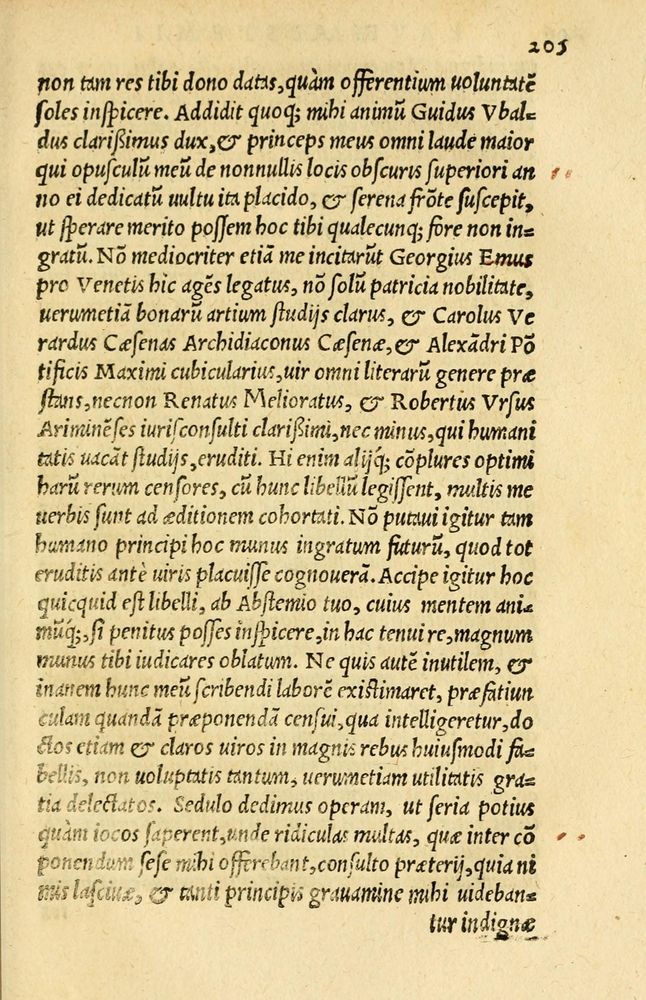 205
non tam res tibi dono datas, quàm offerentium uoluntatē
soles inspicere. Addidit quoq; mihi animū Guidus Vbal=
dus clarißimus dux, & princeps meus omni laude maior
qui opusculū meū de nonnullis locis obscuris superiori an
no ei dedicatū uultu ita placido, & serena frōte suscepit,
ut sperare merito possem hoc tibi qualecunq; fore non in=
gratū. Nō mediocriter etiā me incitarūt Georgius Emus
pro Venetis hic agēs legatus, nō solū patricia nobilitate,
uerumetiā bonarū artium studijs clarus, & Carolus Ve
rardus Cæsenas Archidiaconus Cæsenæ, & Alexādri Pō
tificis Maximi cubicularius, uir omni literarū genere præ
stans, necnon Renatus Melioratus, & Robertus Vrsus
Ariminēses iurisconsulti clarißimi, nec minus, qui humani
tatis uacāt studijs, eruditi. Hi enim alijq́; cōplures optimi
harū rerum censores, cū hunc libellū legissent, multis me
uerbis sunt ad æditionem cohortati. Nō putaui igitur tam
humano principi hoc munus ingratum futurū, quod tot
eruditis antè uiris placuisse cognouerā. Accipe igitur hoc
quicquid est libelli, ab Abstemio tuo, cuius mentem ani=
mūq́;, si penitus posses inspicere, in hac tenui re, magnum
munus tibi iudicares oblatum. Ne quis autē inutilem, &
inanem hunc meū scribendi laborē existimaret, præfatiun
culam quandā præponendā censui, qua intelligeretur, do
ctos etiam & claros uiros in magnis rebus huiusmodi fa=
bellis, non uoluptatis tantum, uerumetiam utilitatis gra=
tia delectatos. Sedulo dedimus operam, ut seria potius
quàm iocos saperent, unde ridiculas multas, quæ inter cō
ponendum sese mihi offerebant, consulto præterij, quia ni
mis lasciuæ, & tanti principis grauamine mihi uideban=
tur indignæ